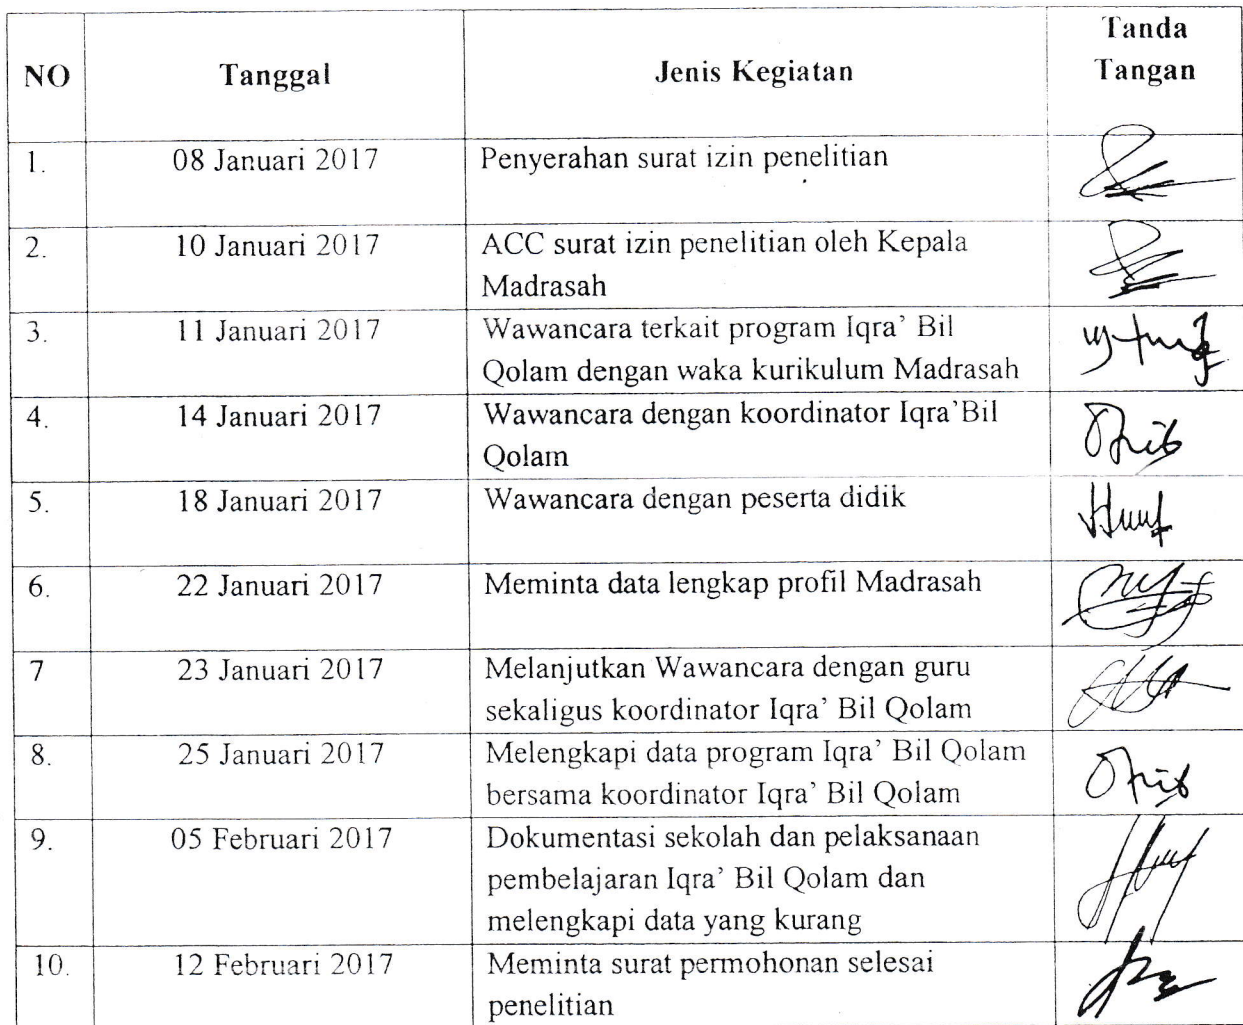 NO Tanggal Jenis Kegiatan Tanda
Tangan
1. 08 Januari 2017 Penyerahan surat izin penelitian
2. 10 Januari 2017 ACC surat izin penelitian oleh Kepala
Madrasah
3. 11 Januari 2017 Wawancara terkait program Iqra’ Bil
Qolam dengan waka kurikulum Madrasah
4. 14 Januari 2017 Wawancara dengan koordinator Iqra’Bil
Qolam
5. 18 Januari 2017 Wawancara dengan peserta didik
6. 22 Januari 2017 Meminta data lengkap profil Madrasah
7 23 Januari 2017 Melanjutkan Wawancara dengan guru
sekaligus koordinator Iqra’ Bil Qolam
8. 25 Januari 2017 Melengkapi data program Iqra’ Bil Qolam
bersama koordinator Iqra’ Bil Qolam
9. 05 Februari 2017 Dokumentasi sekolah dan pelaksanaan
pembelajaran Iqra’ Bil Qolam dan
melengkapi data yang kurang
10. 12 Februari 2017 Meminta surat permohonan selesai
penelitian